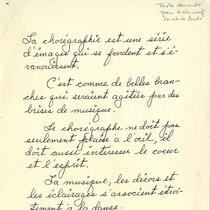 La chorégraphie est une série
d'images qui se fondent et s'é-
vanouissent.
C'est comme de belles bran-
ches qui seraient agitées par des
brises de musique.
Le chorégraphe ne doit pas
seulement plaire à l'œil, il
doit aussi intéresser le cœur
et l'esprit.
La musique, les décors et
les éclairages s'associent étroi-
tement à la danse.